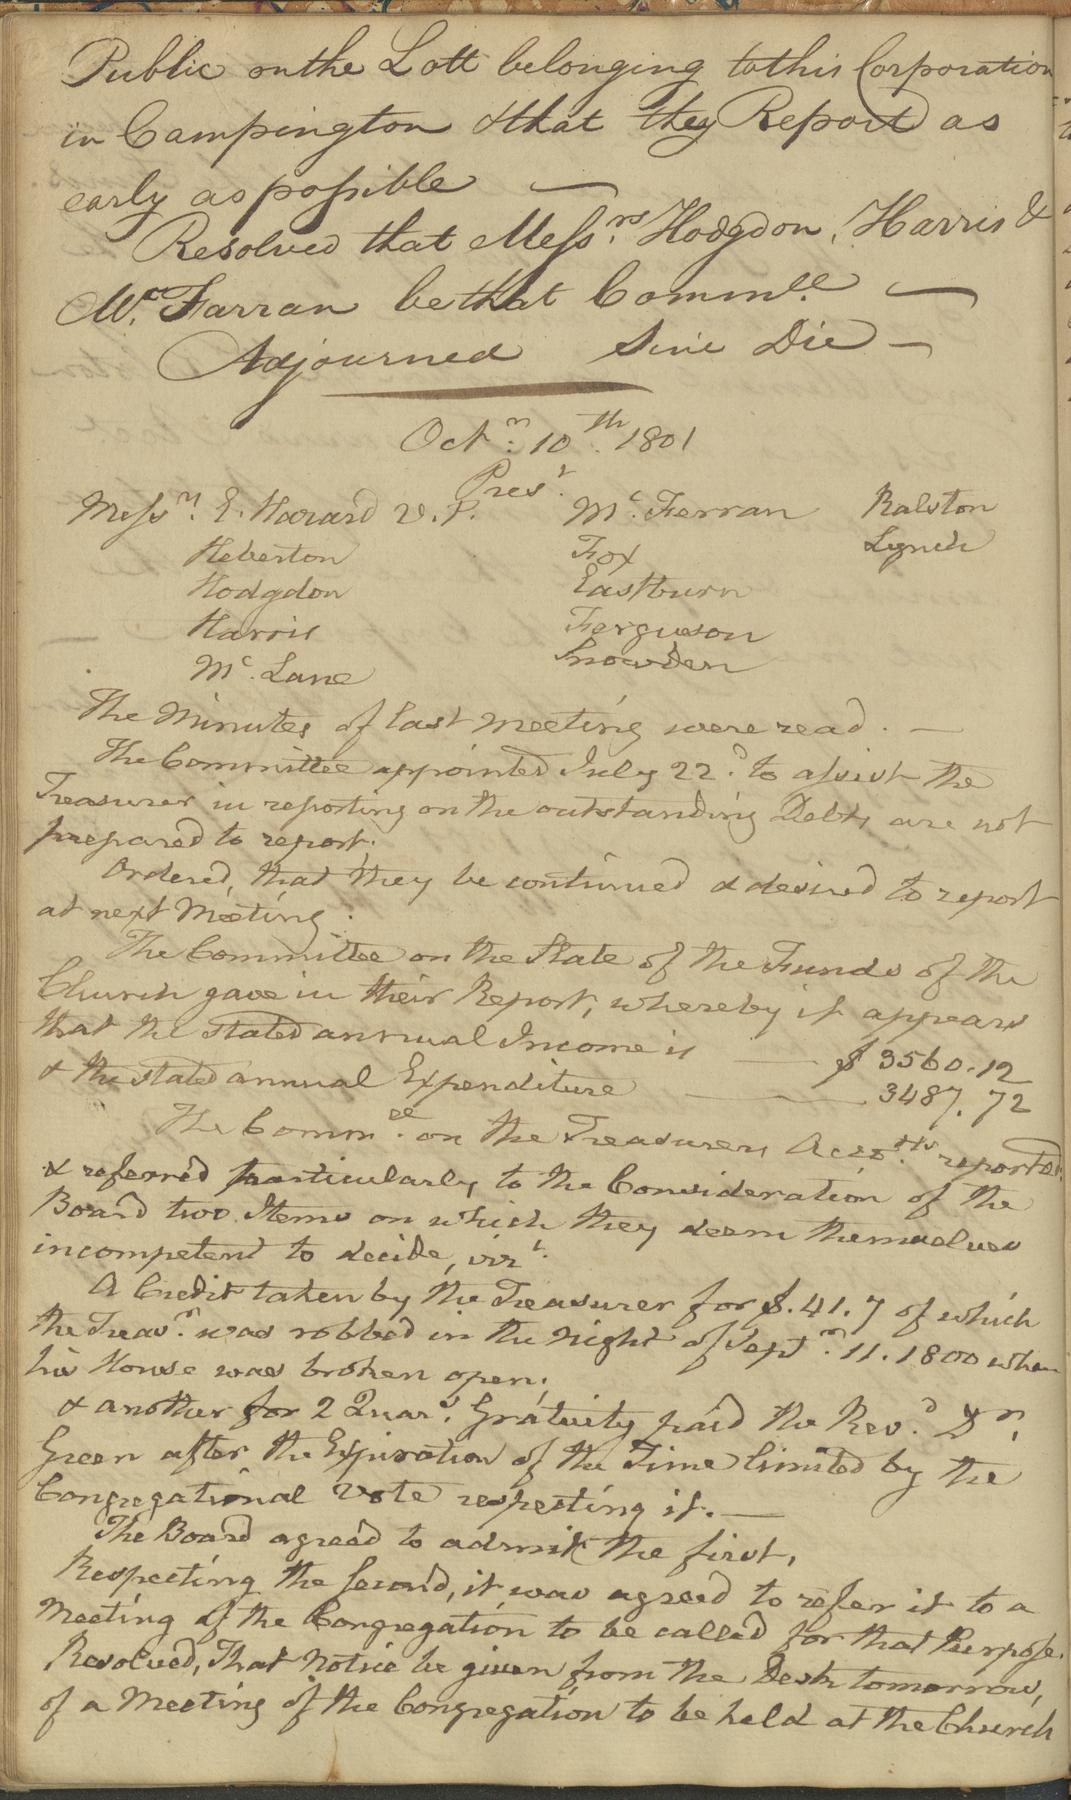 Public on the Lott belonging to this Corporation
in Campington & that they Report as
early as possible —
Resolved that Messrs. Hodgdon, Harris &
Mc. Farran be that Commee. —
Adjourned Sine Die —
Octr. 10th. 1801
Prest.
Messrs. E. Hazard V. P.
Heberton
Hodgdon
Harris
Mc. Lane
Mc. Ferran
Fox
Eastburn
Ferguson
Snowden
Ralston
Lynch
The Minutes of last Meeting were read. —
The Committee appointed July 22d. to assist the
Treasurer in reporting on the outstanding Debts are not
prepared to report.
Ordered, that they be continued & desired to report
at next Meeting.
The Committee on the State of the Funds of the
Church gave in their Report, whereby it appears
that the stated annual Income is — $ 3560.12
& the stated annual Expenditure — 3487.72
The Commee. on the Treasurers Accots. reported
& referred particularly to the Consideration of the
Board two Items on which they deem themselves
incompetent to decide, vizt.
A Credit taken by the Treasurer for $.41.7 of which
the Treasr. was robbed in the Night of Septr. 11. 1800 when
his House was broken open;
& another for 2 Quars. Gratuity paid the Revd. Dr.
Green after the Expiration of the Time limited by the
Congregational Vote respecting it. —
The Board agreed to admit the first,
Respecting the second, it was agreed to refer it to a
Meeting of the Congregation to be called for that Purpose.
Resolved, That Notice be given from the Desk tomorrow,
of a Meeting of the Congregation to be held at the Church